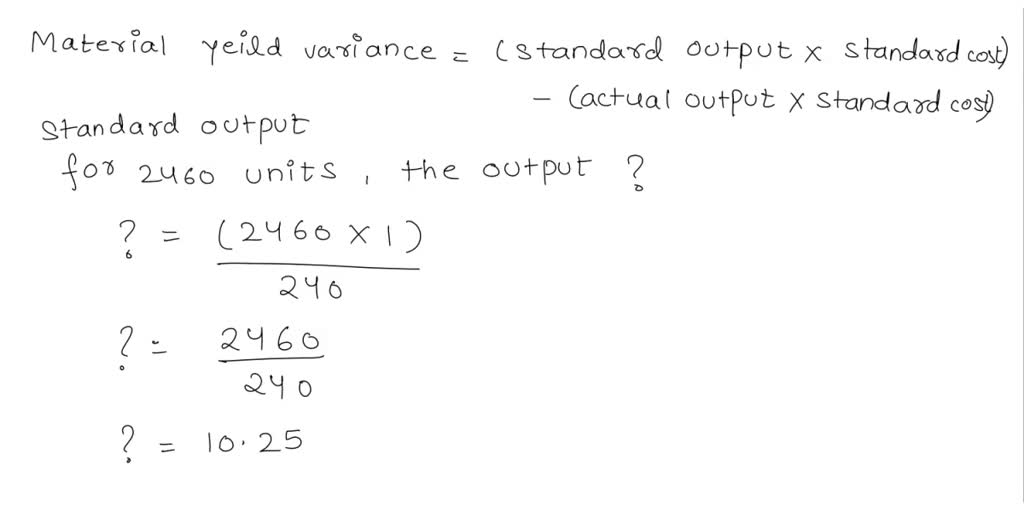 Material yeild variance = (standard output x standard cost)
- (actual output x standard cost)
standard output
for 2460 units, the output ?
? = (2460 x 1)
240
? = 2460
240
? = 10.25